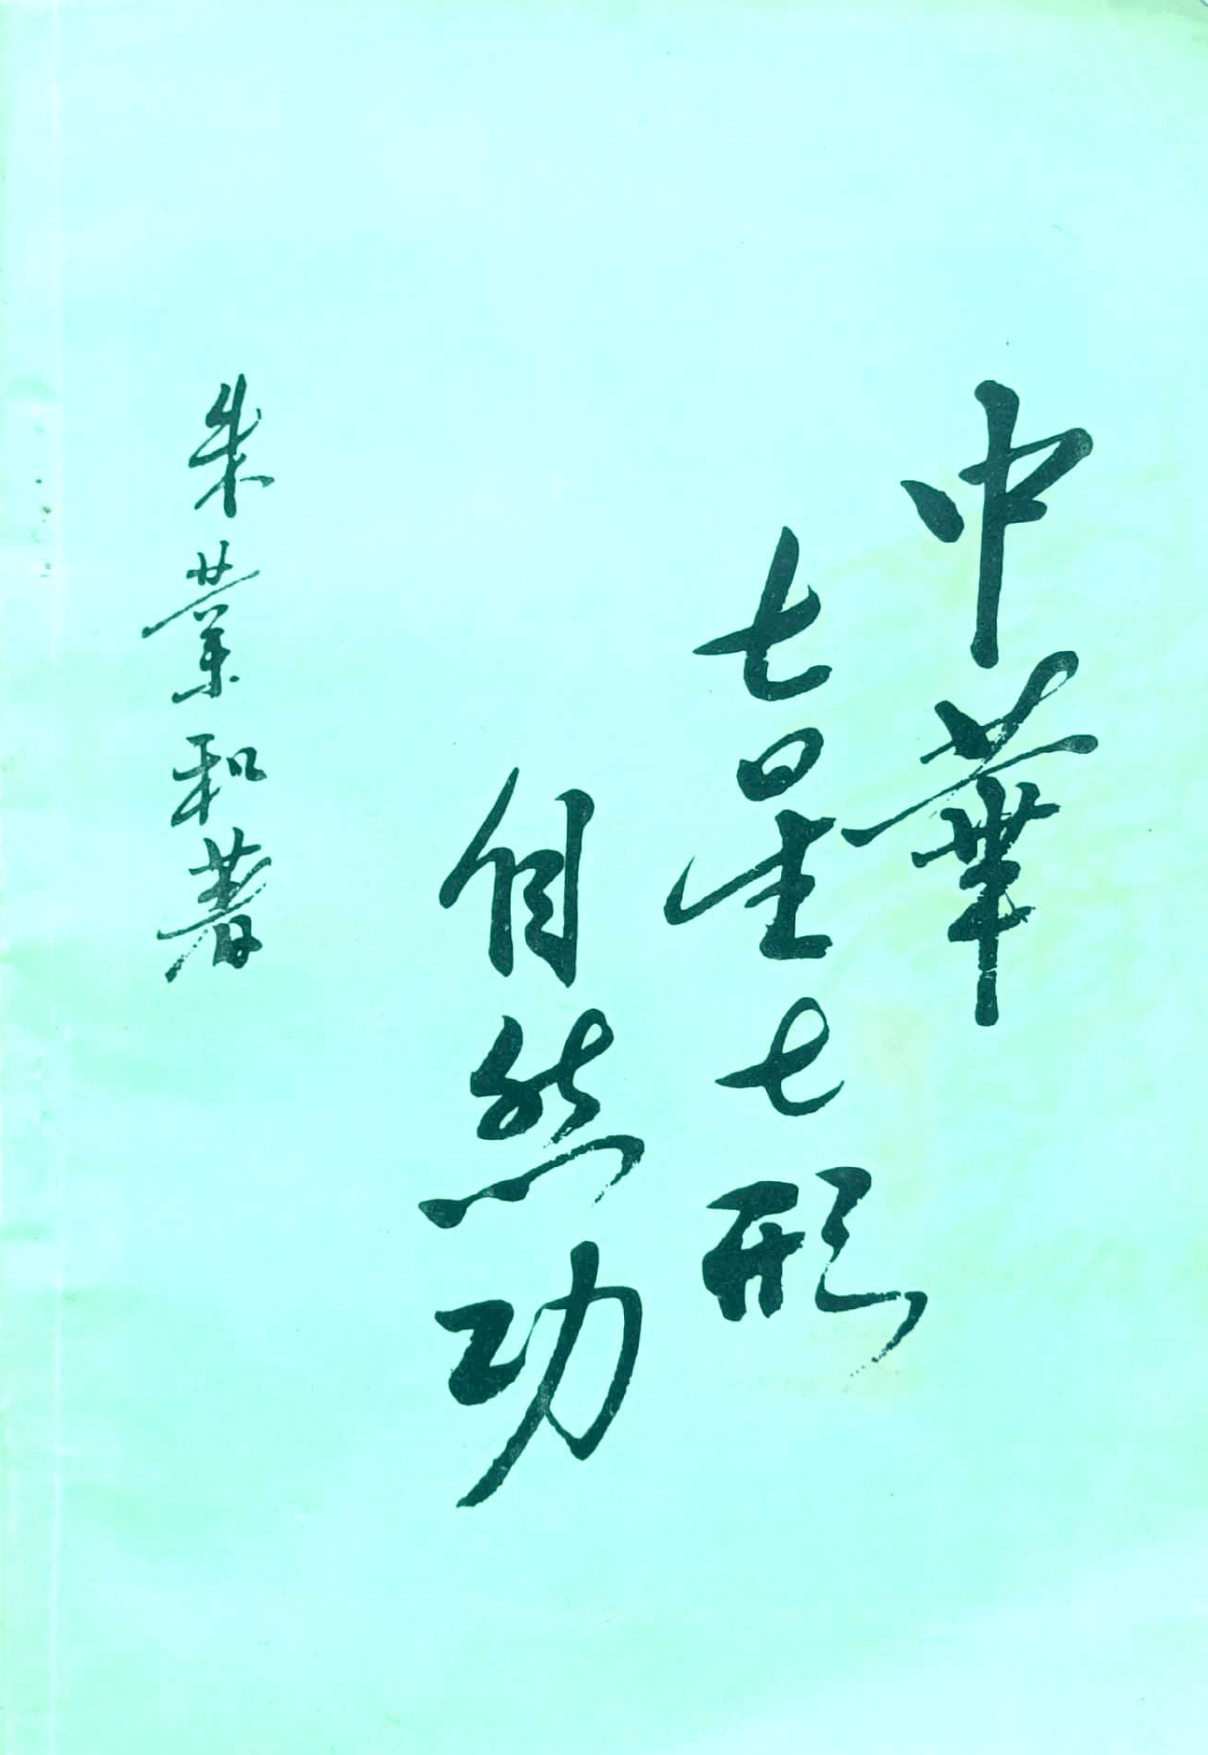 中華
七星七形
自然功
朱業和著